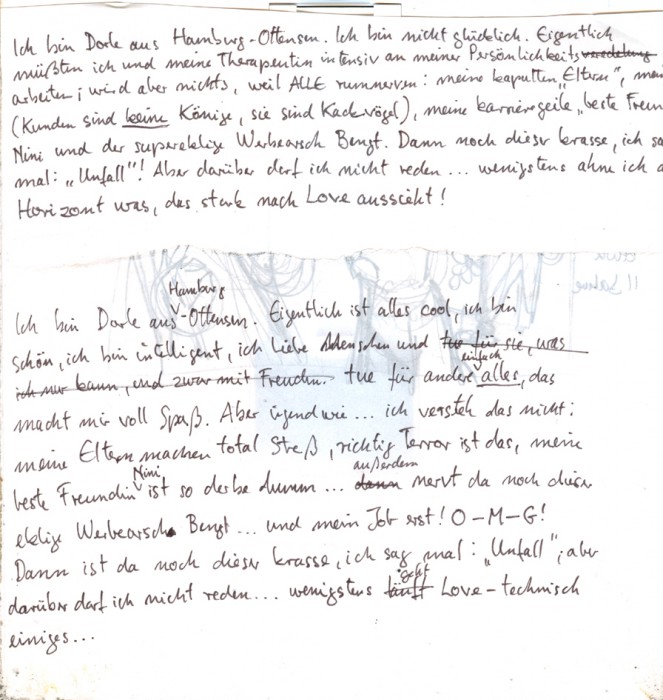 Ich bin Dorle aus Hamburg-Ottensen. Ich bin nicht glücklich. Eigentlich
müßten ich und meine Therapeutin intensiv an meiner Persönlichkeitsveredelung
arbeiten; wird aber nichts, weil ALLE rumnerven: meine kaputten „Eltern",
(Kunden sind keine Könige, sie sind Kackvögel), meine karrieregeile „beste
Nini und der supereklige Werbearsch Bengt. Dann noch dieser krasse, ich
mal: „Unfall"! Aber darüber darf ich nicht reden... wenigstens ahne ich
Horizont was, das stark nach Love aussieht!
Hamburg
Ich bin Dorle aus -Ottensen. Eigentlich ist alles cool, ich bin
schön, ich bin intelligent, ich liebe Menschen und tue für sie, was
einfach
ich nur kann, und zwar mit Freuden. tue für andere alles, das
macht mir voll Spaß. Aber irgendwie... ich versteh das nicht:
meine Eltern machen total Streß, richtig Terror ist das, meine
Nini außerdem
beste Freundin ist so derbe dumm... dann nervt da noch dieser
eklige Werbearsch Bengt... und mein Job erst! O-M-G!
Dann ist da noch dieser krasse, ich sag mal: „Unfall", aber
geht
darüber darf ich nicht reden... wenigstens läuft Love-technisch
einiges...